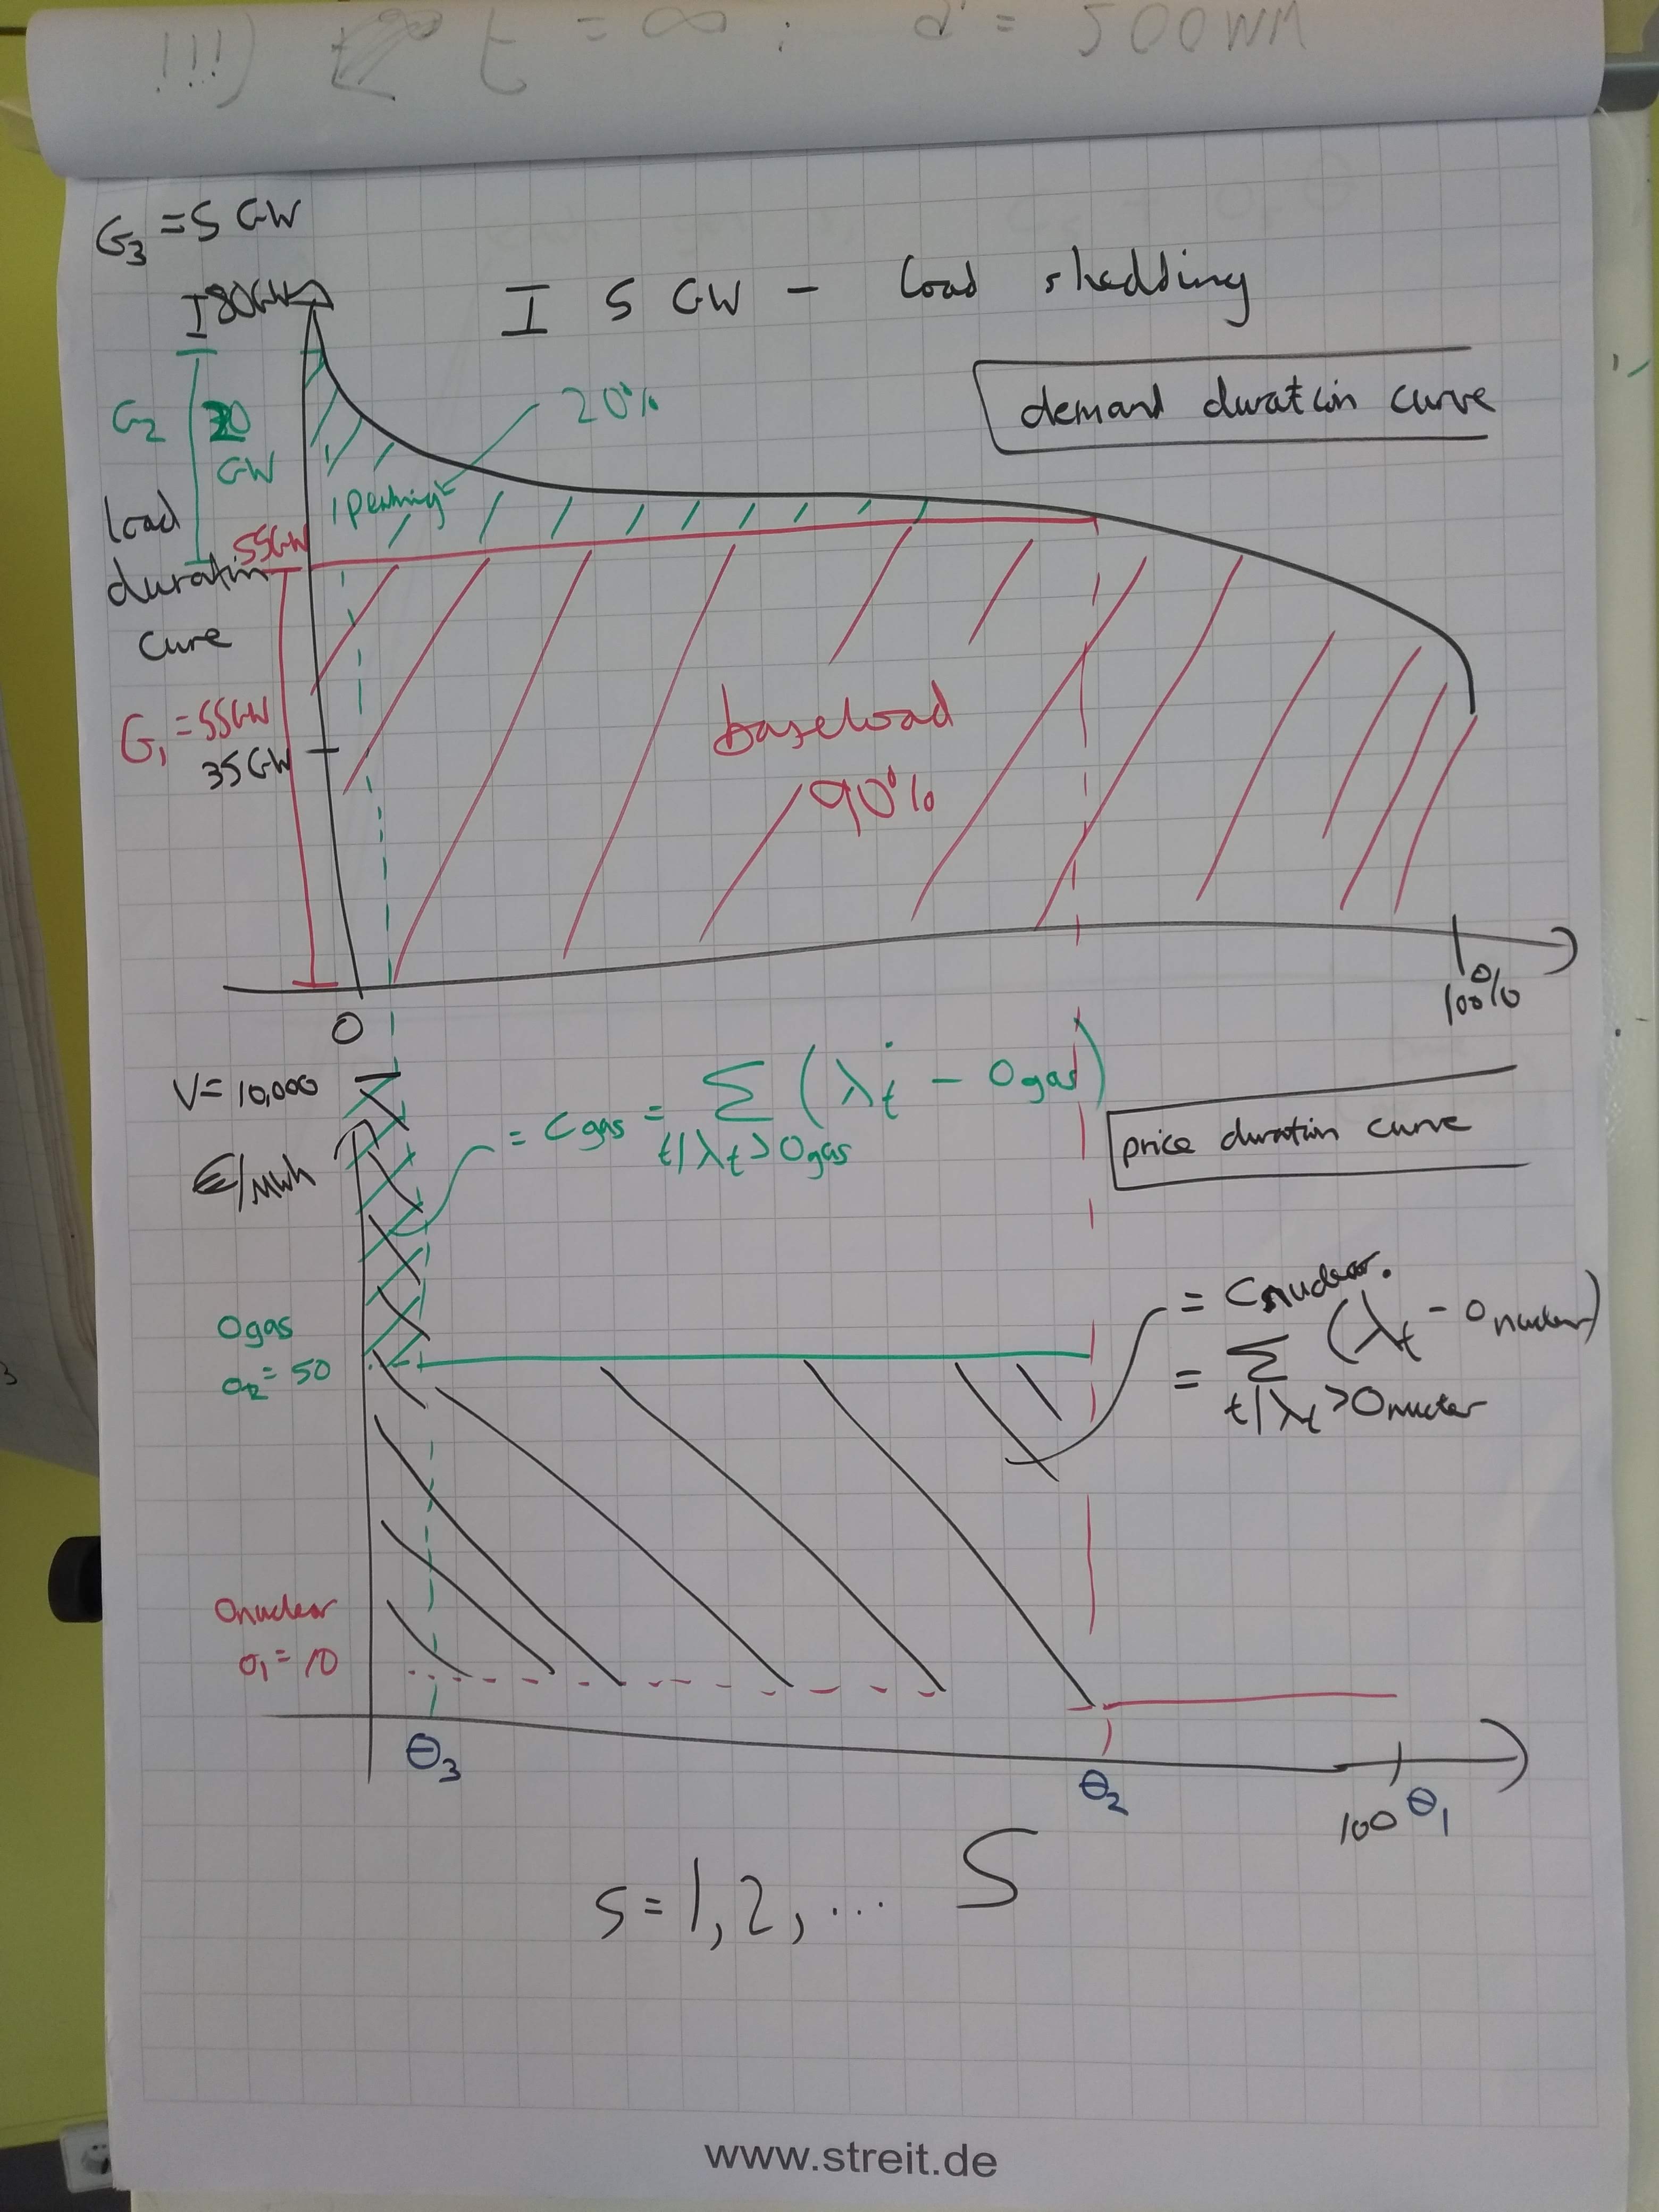 !!!) t = ∞ : d = 500 WM
G₃ = 5 GW
I 80GW
I 5 GW – load shedding
demand duration curve
G₂
20
GW
20%
"peaking"
load
duration
cure
55GW
G₁ = 55GW
35GW
baseload
90%
0
100%
V = 10,000
€/MWh
= Cgas = Σ (λt – Ogas)
t|λt>Ogas
price duration curve
= Cnuclear.
= Σ (λt – Onuclear)
t|λt>Onuclear
Ogas
o₂ = 50
Onuclear
o₁ = 10
Θ₃
Θ₂
100 Θ₁
s = 1, 2, ... S
www.streit.de